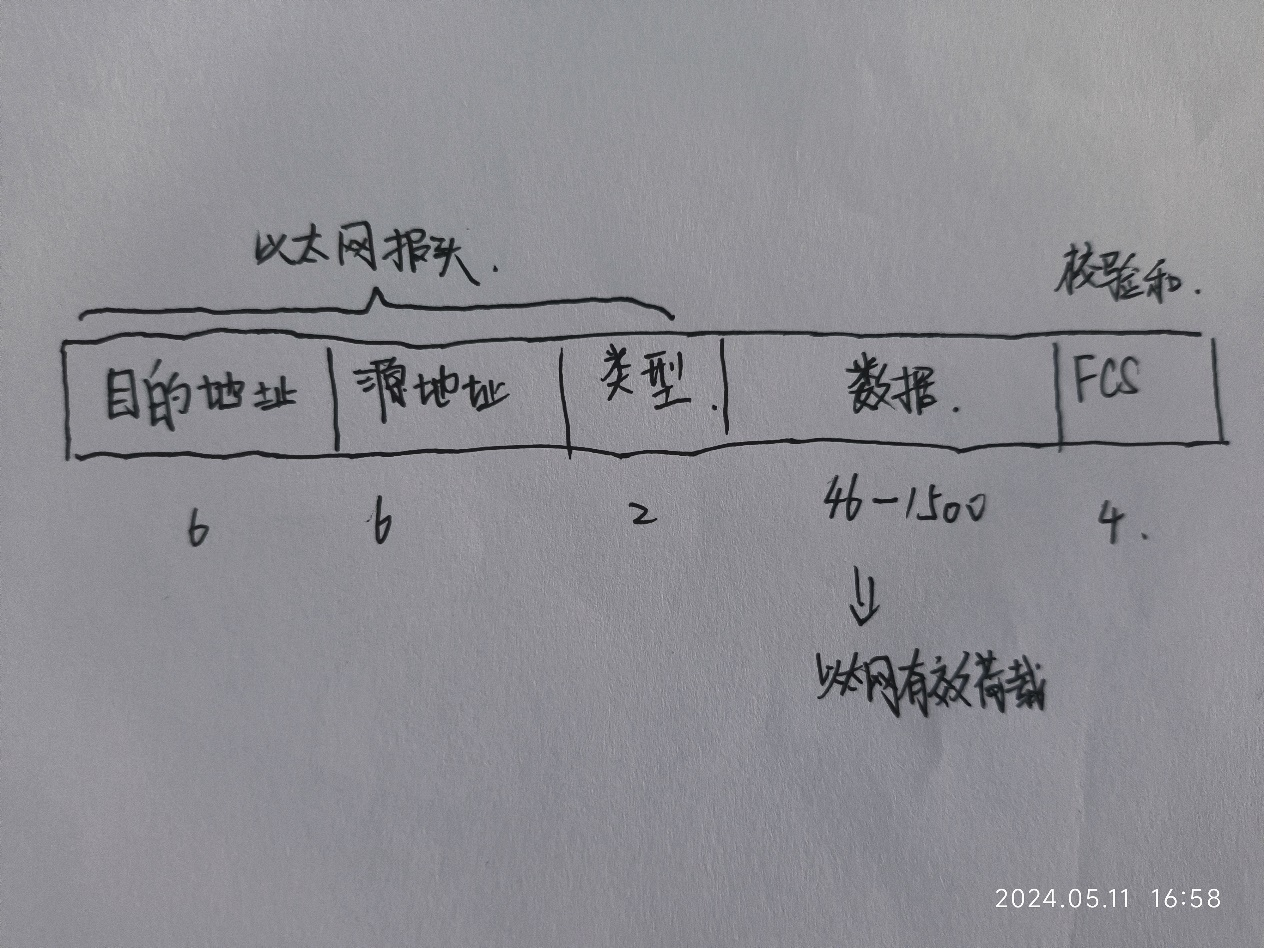 以太网报头.
校验和.
目的地址 源地址 类型. 数据. FCS
6 6 2 46-1500 4.
以太网有效荷载
2024.05.11 16:58